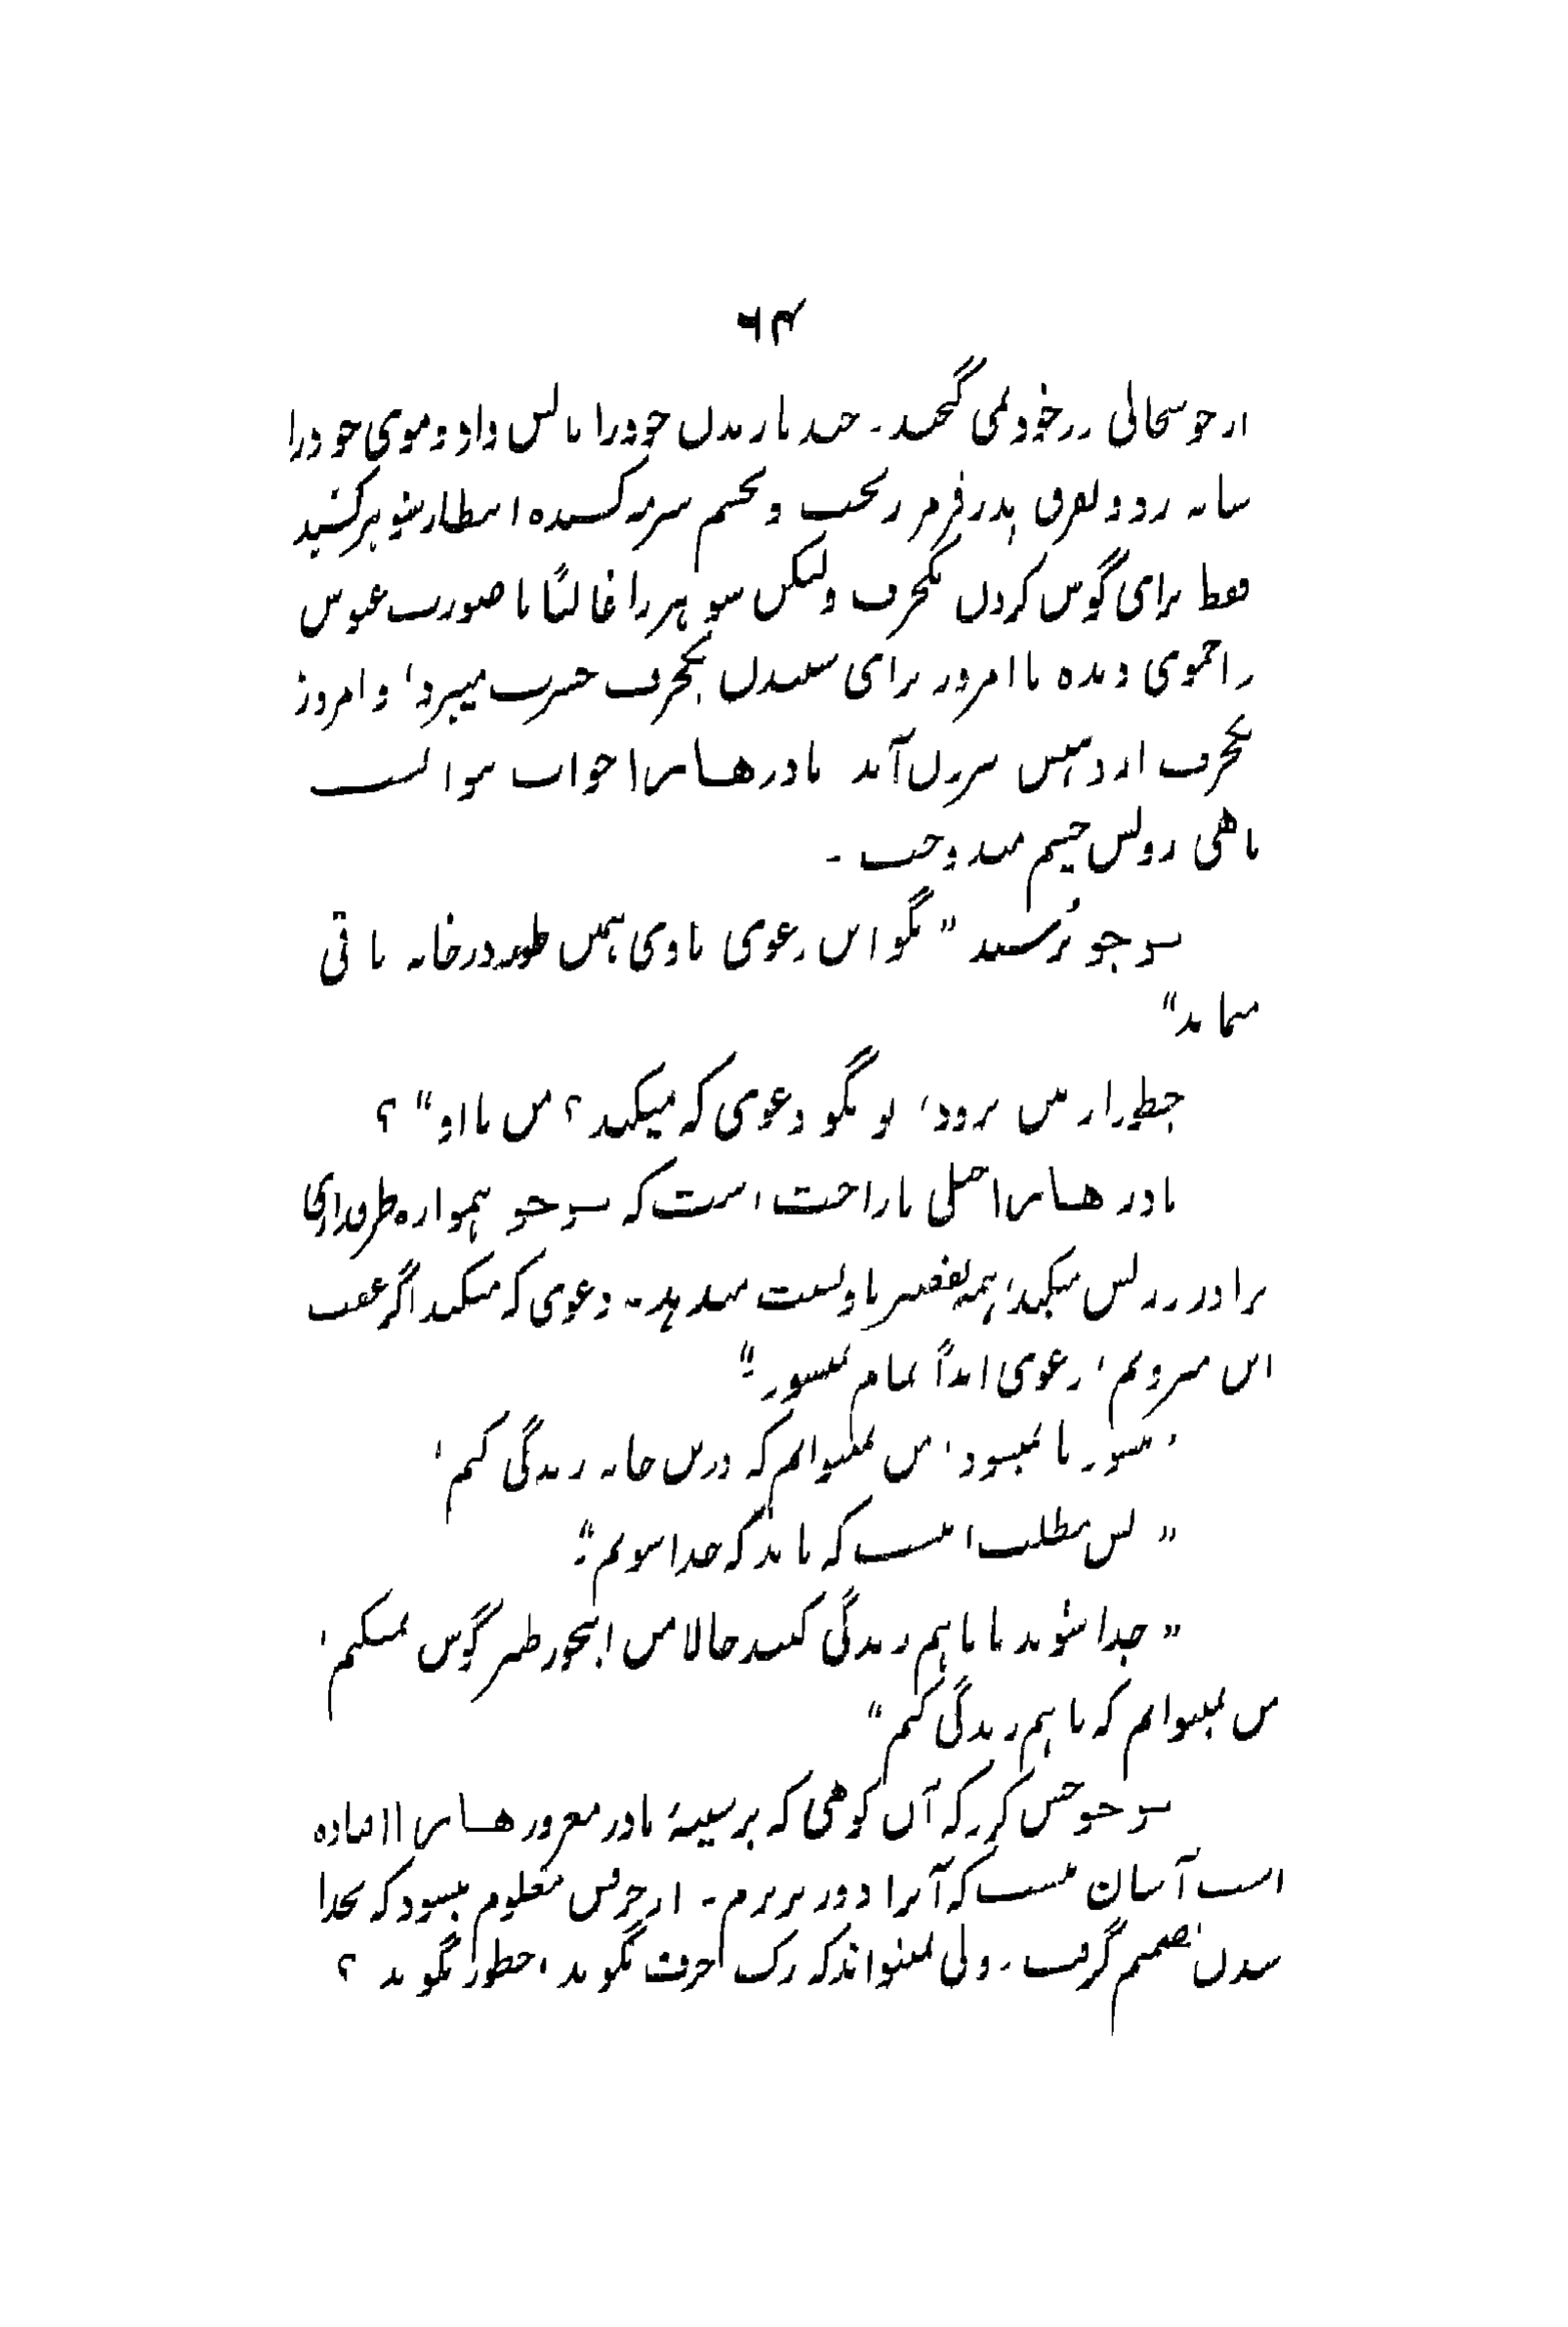 ۶۴
از خوشحالی در خود نمی گنجید۔ چند بار بدن خود را مالش داد و موی خود را
شانه زد و بفرق پودر قرمز ریخت و بچشم سرمه کشیده انتظار شوهر کشید
فقط برای گوش کردن یکحرف ولیکن شوهر را غالباً با صورت عبوس
و اخموی دیده تا امروز برای شنیدن یکحرف حسرت میبرد، و امروز
یکحرف از دهنش بیرون آمد مادر هاسرا جواب نتوانست
ماهی روش چشم میدوخت ۔
سوجو پرسید "بگو این دعوی تا وی همین طور در خانه باقی
میماند"
چطور از من برود، تو بگو دعوی که میکند؟ من یا او"؟
مادر هاسرا خیلی ناراحت است که سوجو همواره طرفداری
برادر زنش میکند، همه تقصیر باو نسبت میدهد۔ دعوی که میکند اگر عقب
این میرویم، دعوی ابداً تمام نمیشود۔"
"میشود یا نمیشود، من نمیتوانم که درین خانه زندگی کنم،
"پس مطلب اینست که باید که جدا شویم۔"
"جدا شوید یا باهم زندگی کنید حالا من اینجور طور گوش نمیکنم،
من نمیتوانم که باهم زندگی کنم"
سوجو حس کرد که آن کوهی که بر سینهٔ مادر مغرور هاسرا افتاده
است آسان نیست که آنرا دور ببرم۔ از حرفش معلوم میشود که بجدا
شدن تصمیم گرفت۔ ولی نمیتواند که رک حرف بگوید، چطور بگوید ؟